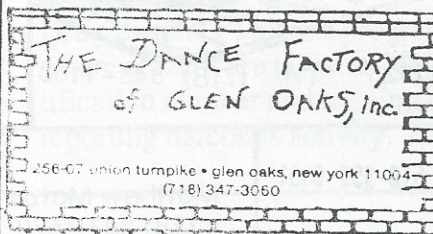 THE DANCE FACTORY
of GLEN OAKS, inc.
256-07 union turnpike • glen oaks, new york 11004
(718) 347-3060